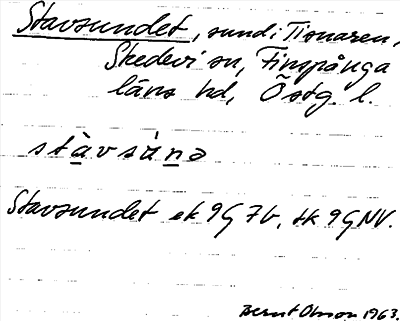 Stavsundet, sund i Tisnaren,
Skedevi sn, Finspånga
läns hd, Östg. l.
stàvsúnə
Stavsundet ek 9G 7b, tk 9G NV.
Bernt Olsson 1963.